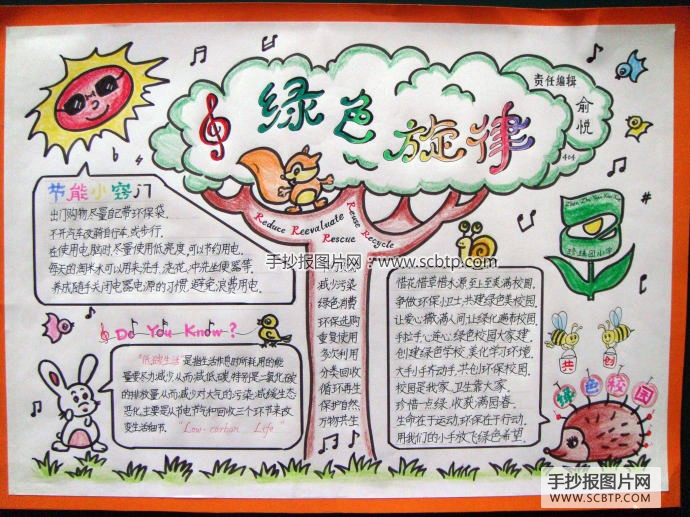 绿色旋律
责任编辑
俞悦
404
节能小窍门
出门购物尽量自己带环保袋.
不开汽车改骑自行车,或步行.
在使用电脑时,尽量使用低亮度,可以节约用电.
每天的淘米水可以用来洗手、浇花、冲洗坐便器等.
养成随手关闭电器电源的习惯,避免浪费用电.
Reduce Reevaluate Reuse Recycle
Rescue
手抄报图片网:www.scbtp.com
减少污染
绿色消费
环保选购
重复使用
多次利用
分类回收
循环再生
保护自然
万物共生
珍珠园小学
Do You Know?
"低碳生活"是指生活作息时所耗用的能
量要尽力减少,从而减低碳,特别是二氧化碳
的排放量,从而减少对大气的污染,减缓生态
恶化,主要是从节电节气和回收三个环节来改
变生活细节.
"Low-carbon Life"
惜花惜草惜水源,至上至美满校园.
争做环保小卫士,共建绿色美校园.
让爱心撒满人间,让绿化遍布校园.
手拉手心连心,绿色校园大家建.
创建绿色学校,美化学习环境.
大手小手齐动手,共创环保校园.
校园是我家,卫生靠大家.
珍惜一点绿,收获满园春.
生命在于运动,环保在于行动.
用我们的小手放飞绿色希望.
共创
绿色校园
手抄报图片网
WWW.SCBTP.COM